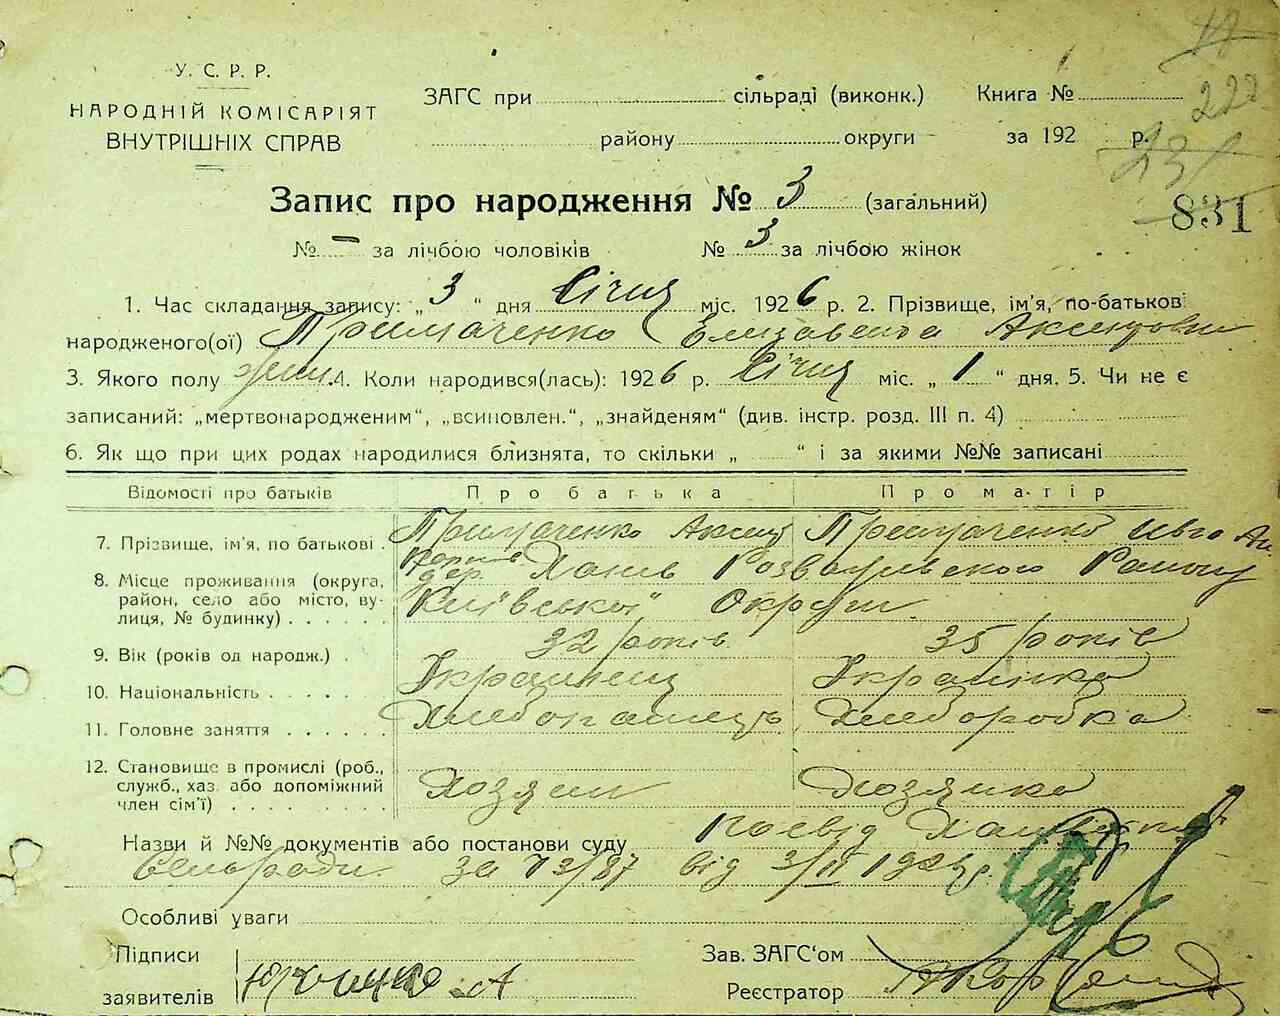 У. С. Р. Р.
НАРОДНІЙ КОМІСАРІЯТ
ВНУТРІШНІХ СПРАВ
ЗАГС при сільраді (виконк.) Книга №
району округи за 192 р.
222
831
Запис про народження № 3 (загальний)
№ – за лічбою чоловіків № 3 за лічбою жінок
1. Час складання запису: „3“ дня Січня міс. 1926 р. 2. Прізвище, ім'я, по-батькові
народженого(ої) Примаченко Єлизавета Аксентовна
3. Якого полу жін. 4. Коли народився(лась): 1926 р. Січня міс. „1“ дня. 5. Чи не є
записаний: „мертвонародженим“, „всиновлен.“, „знайденям“ (див. інстр. розд. III п. 4)
6. Як що при цих родах народилися близнята, то скільки „ “ і за якими №№ записані
Відомості про батьків Про батька Про матір
7. Прізвище, ім'я, по батькові Примаченко Аксент Примаченко
8. Місце проживання (округа, район, село або місто, вулиця, № будинку) дер. Розважівського Району
Київської Округи
9. Вік (років од народж.) 32 років 35 років
10. Національність Українець Українка
11. Головне заняття Хлебопашець Хлеборобка
12. Становище в промислі (роб., служб., хаз. або допоміжний член сім'ї) Хозяин Хозяйка
Назви й №№ документів або постанови суду Посвід
Сельради за 73/87 від 3/II
Особливі уваги
Підписи
заявителів
Зав. ЗАГС'ом
Реєстратор